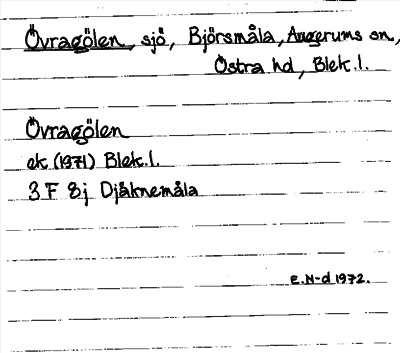 Övragölen, sjö, Björsmåla, Augerums sn,
Östra hd, Blek.l.
Övragölen
ek (1971) Blek.l.
3 F 8j Djäknemåla
E.N-d 1972.